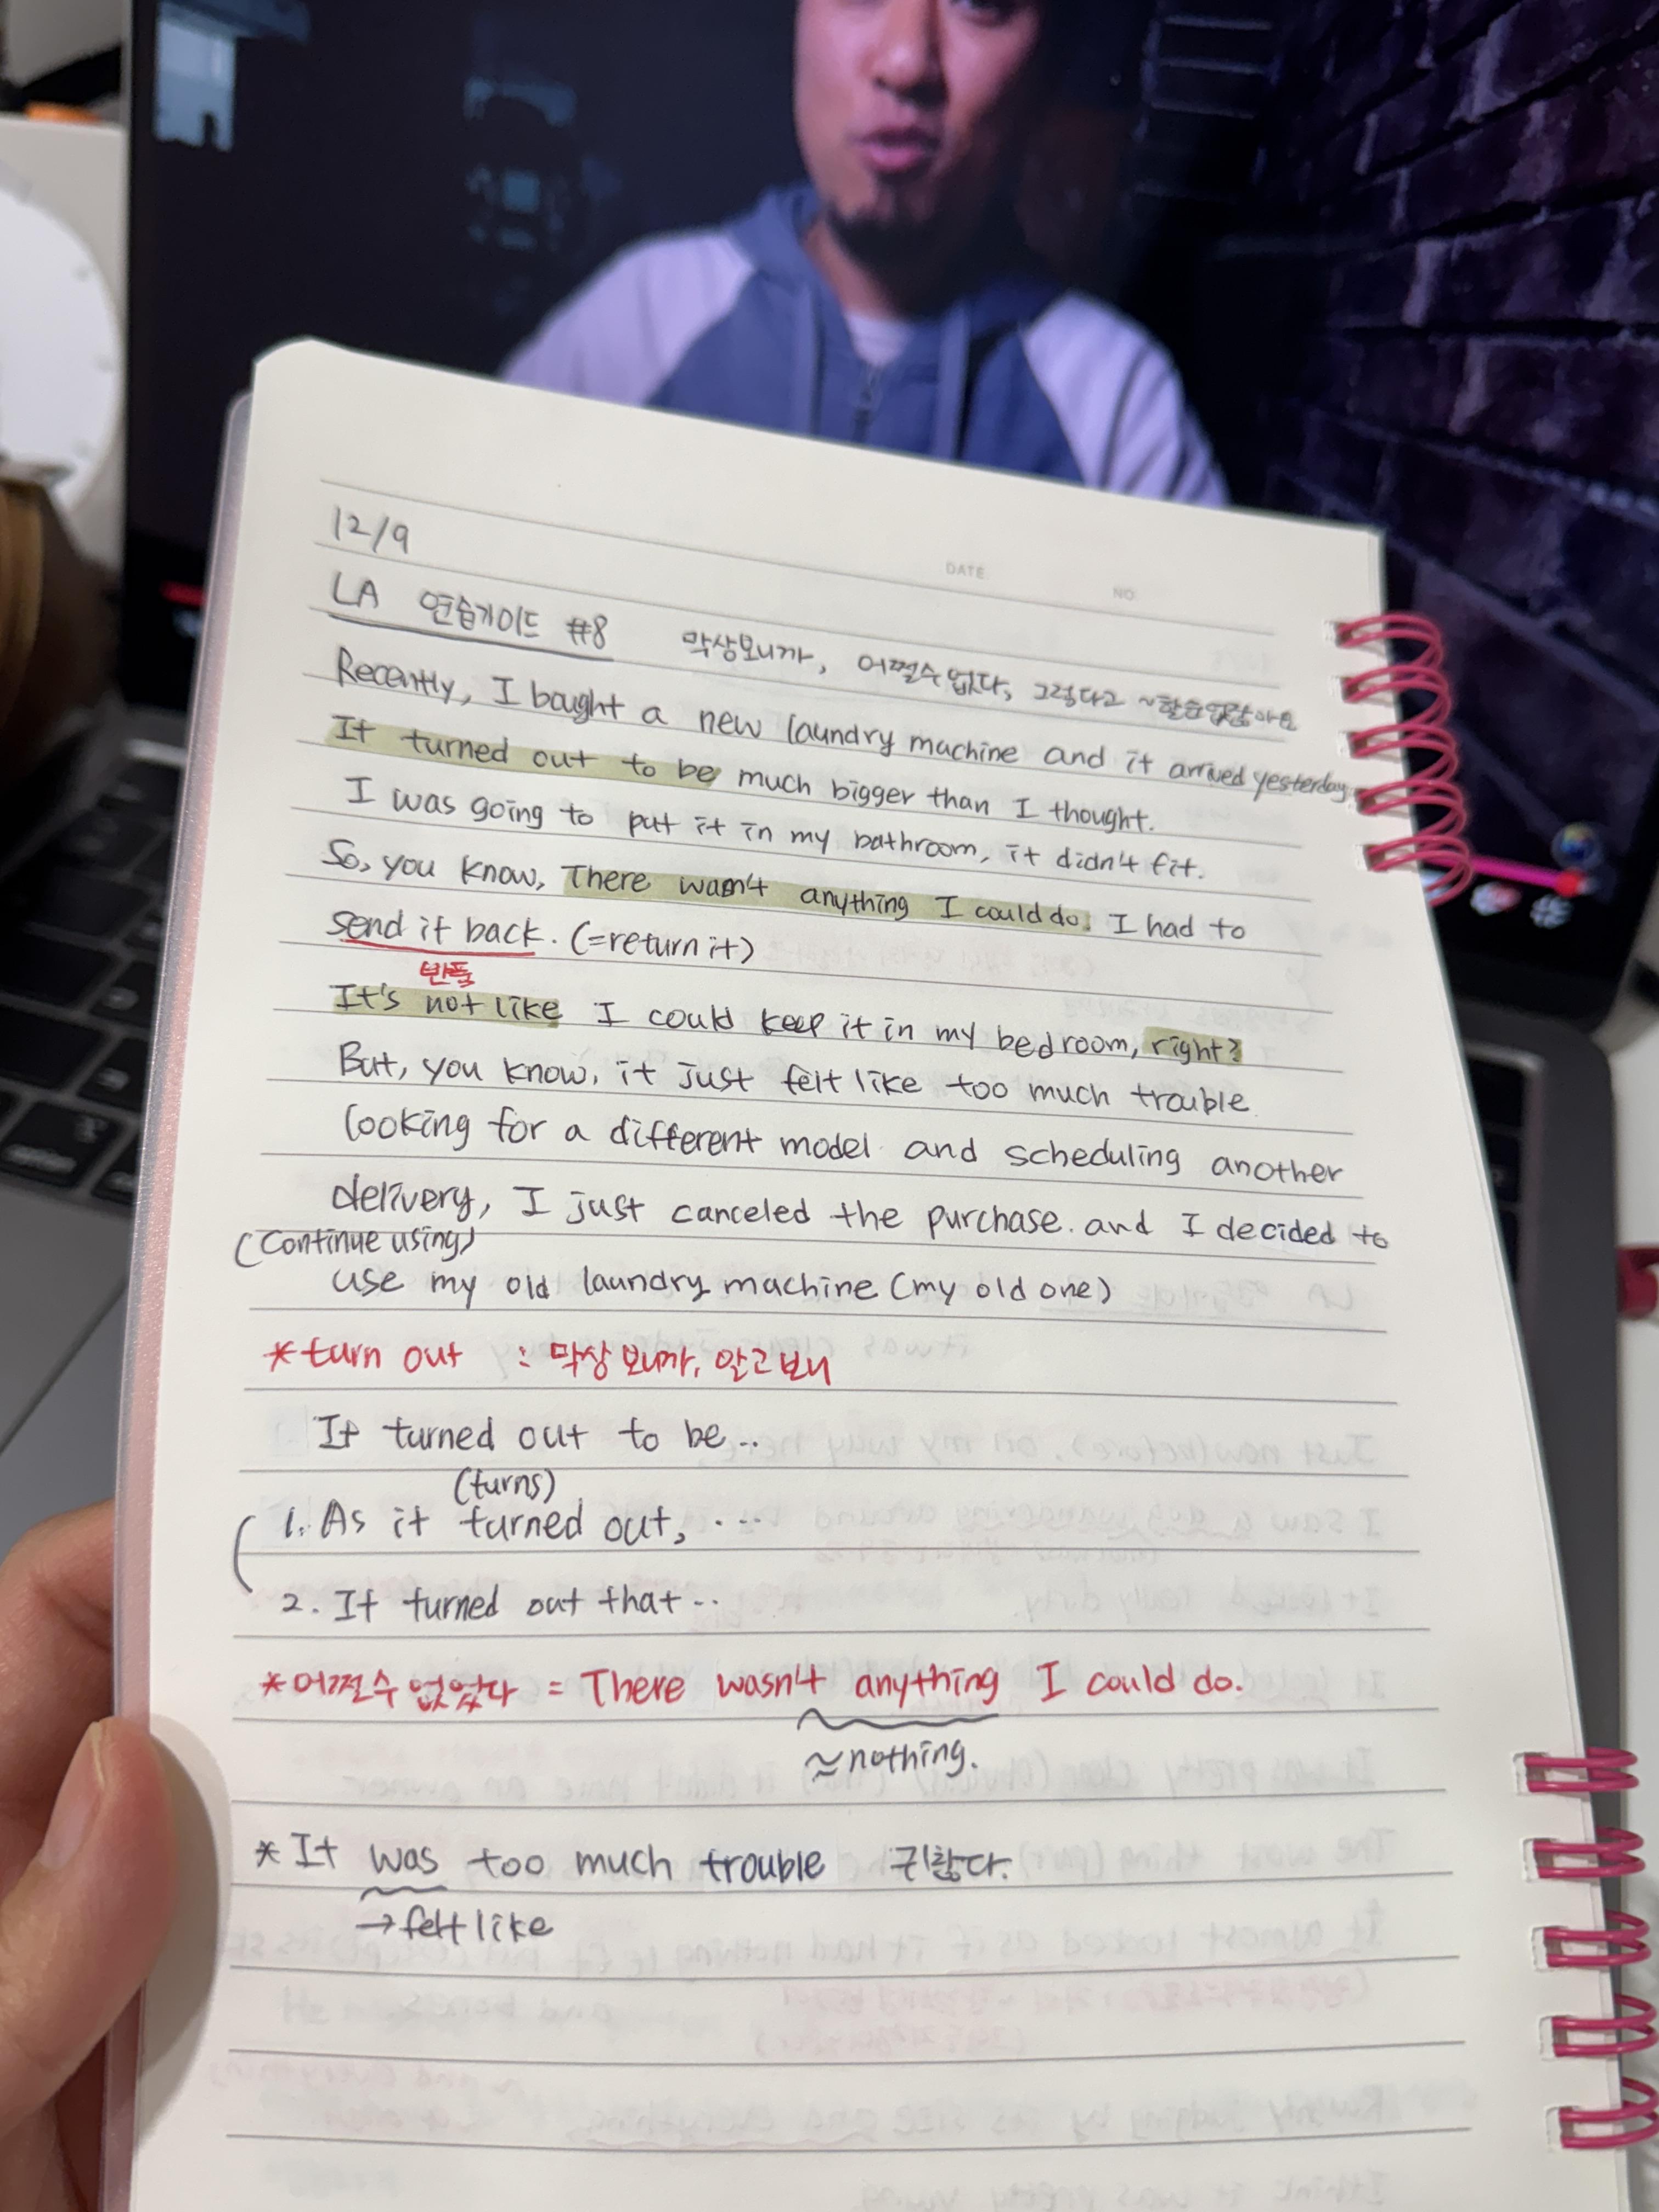 DATE
NO
12/9
LA 연습가이드 #8 막상보니까, 어쩔수없다, 그렇다고 ~할순없잖아요
Recently, I bought a new laundry machine and it arrived yesterday.
It turned out to be much bigger than I thought.
I was going to put it in my bathroom, it didn't fit.
So, you know, There wasn't anything I could do. I had to
send it back. (=return it)
반품
It's not like I could keep it in my bedroom, right?
But, you know, it just felt like too much trouble
looking for a different model and scheduling another
delivery, I just canceled the purchase. and I decided to
(continue using)
use my old laundry machine (my old one)
*turn out :막상 보니까, 알고보니
It turned out to be..
(turns)
1. As it turned out, ...
2. It turned out that..
*어쩔수 없었다 = There wasn't anything I could do.
≈nothing.
*It was too much trouble 귀찮다.
→felt like